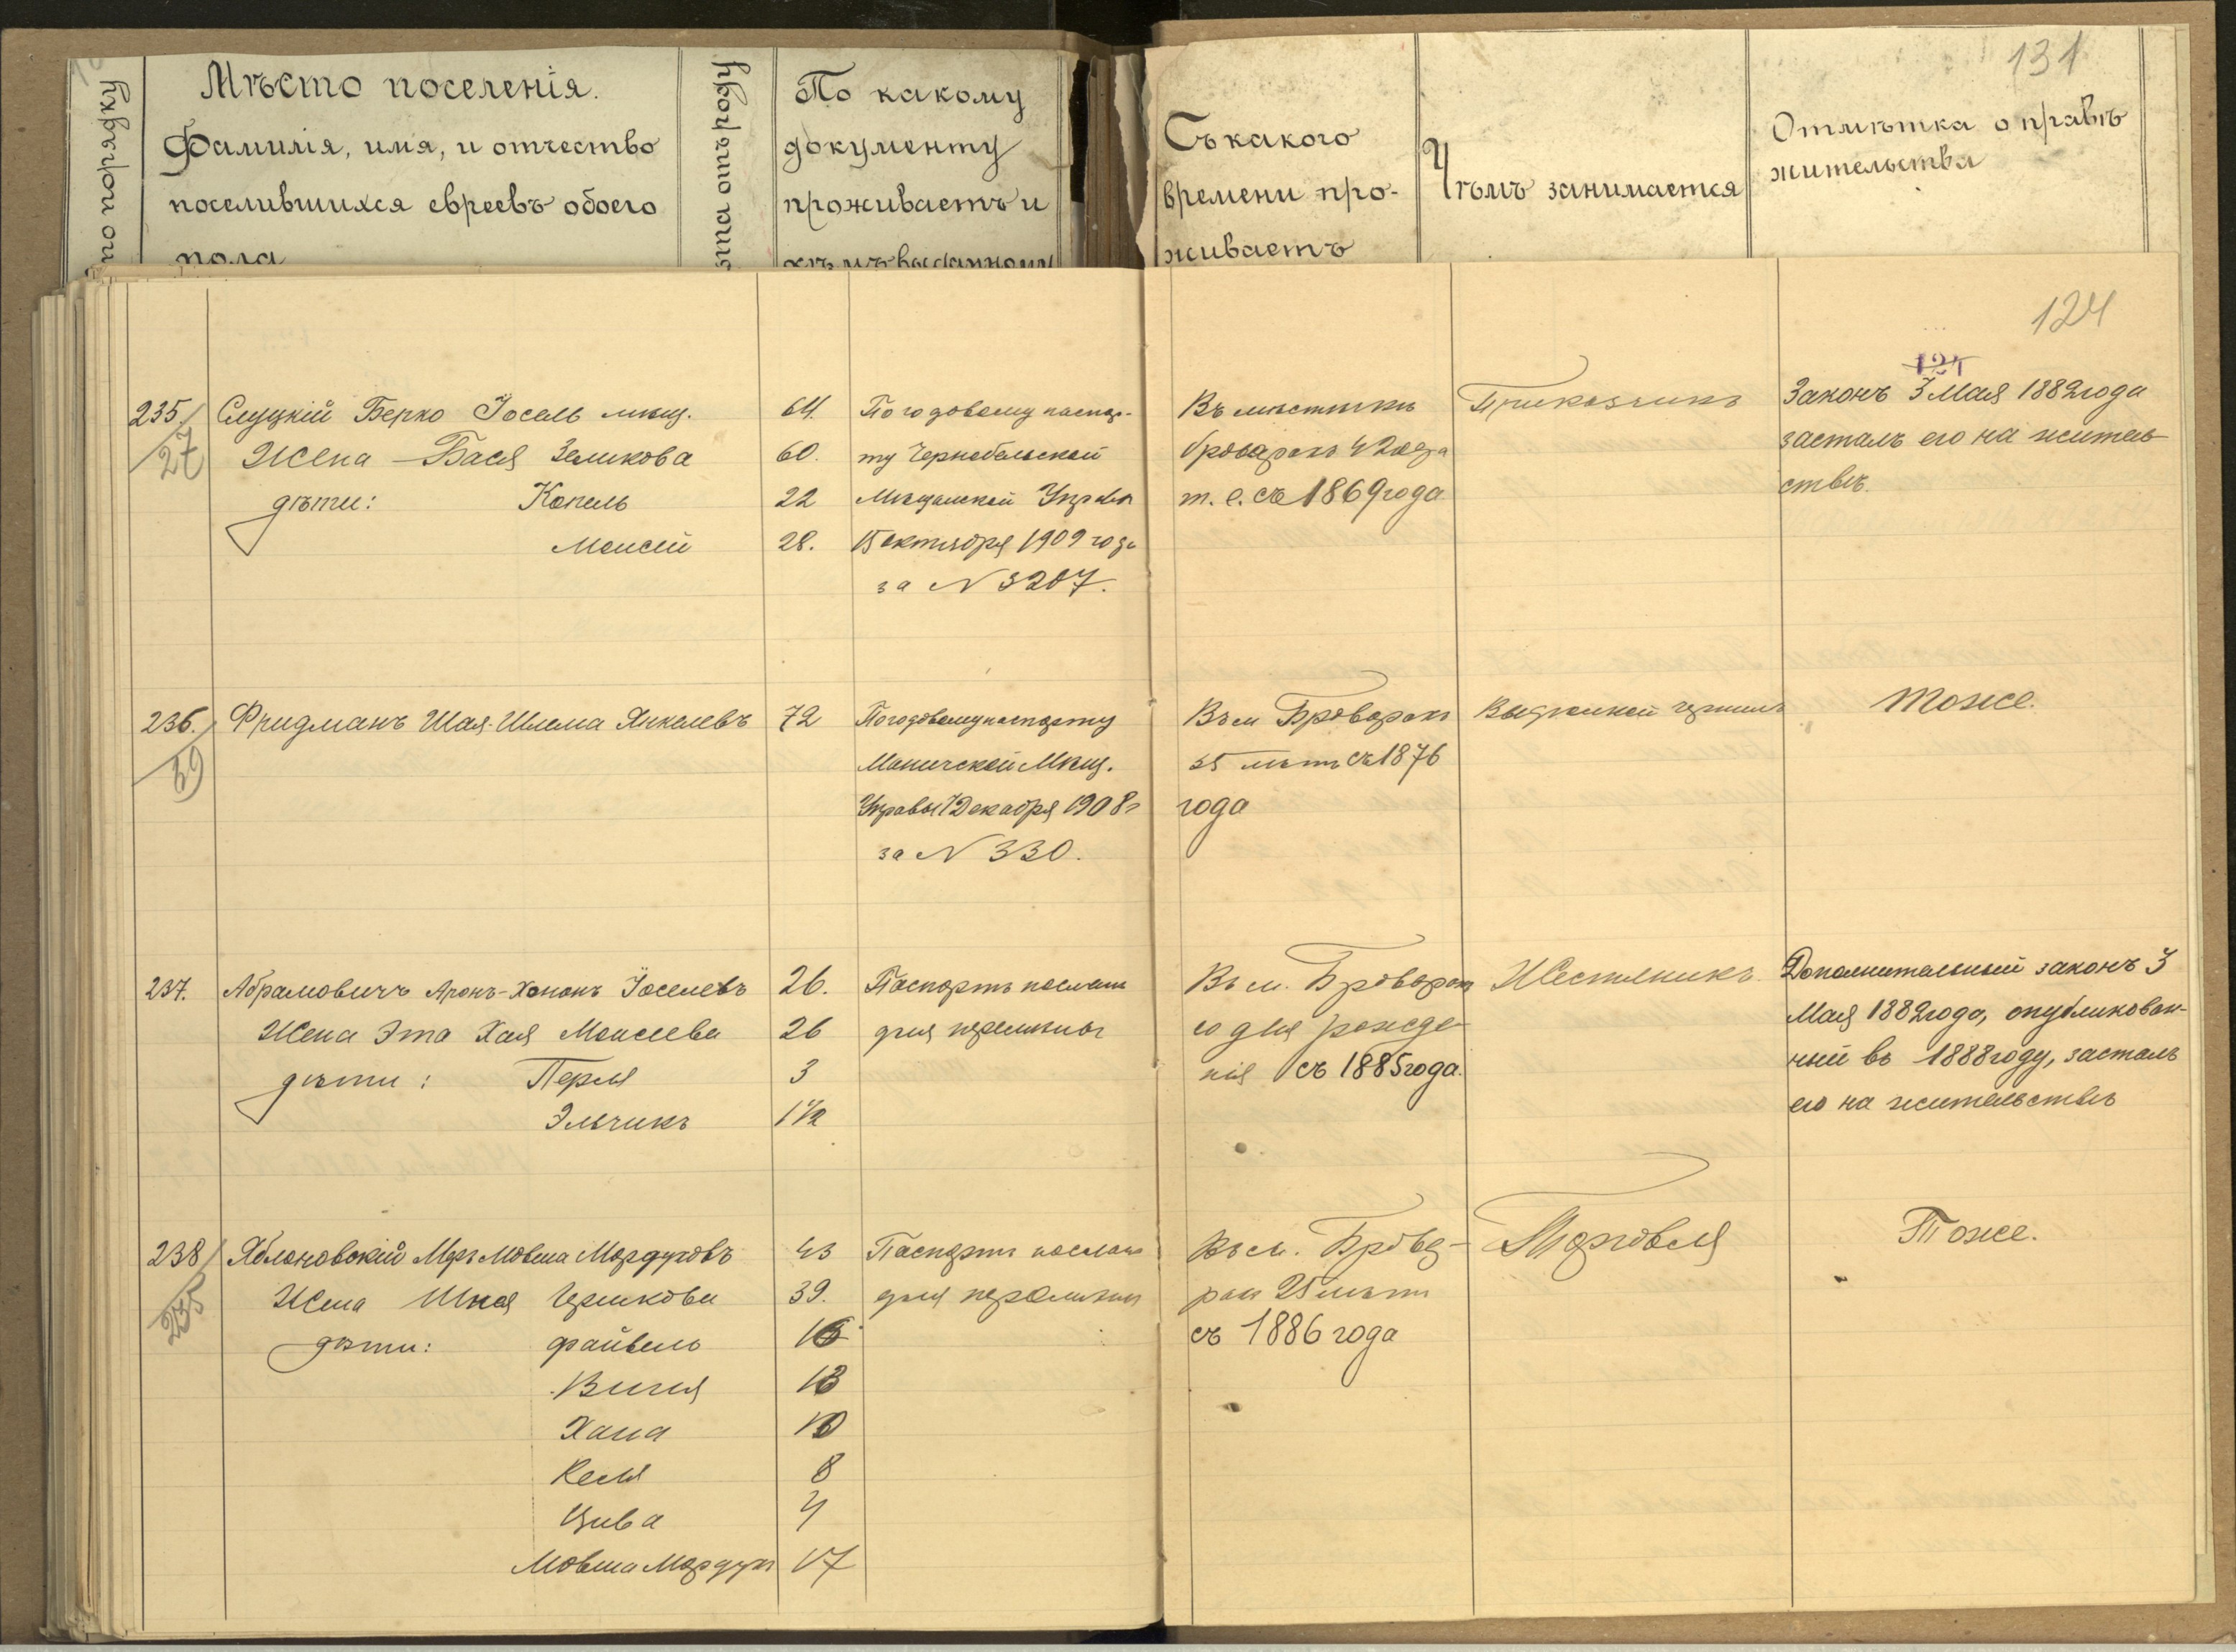 131
по порядку
Мѣсто поселенія.
Фамилія, имя, и отчество
поселившихся евреевъ обоего
пола
отъ роду
По какому
документу
проживаетъ и
кѣмъ выданному
Съ какого
времени про-
живаетъ
Чѣмъ занимается
Отмѣтка о правѣ
жительства
124
124
235. 27
Слуцкій Берко Іосель мѣщ. 64
Жена Бася Зеликова 60.
дѣти: Копель 22
Моисей 28.
По годовому паспор-
ту Чернобыльской
Мѣщанской Управы
15 октября 1909 года
за N 3207.
Въ мѣстечкѣ
Броварахъ 42 года
т. е. съ 1869 года
Приказчикъ
Законъ 3 Мая 1882 года
засталъ его на житель-
ствѣ.
236. 39
Фридманъ Шая-Шлема Янкелевъ 72
По годовому паспорту
Мѣщ.
Управы 12 Декабря 1908 г
за N 330.
Въ м Броварахъ
35 лѣтъ съ 1876
года
Выдѣлкой
Тоже.
237.
Абрамовичъ Аронъ-Хононъ Іоселевъ 26.
Жена Эта Хая Моисеева 26
дѣти: Перля 3
Эльчикъ 1 1/2
Паспортъ посланъ
для перемѣны
Въ м. Броварахъ
со дня рожде-
нія съ 1885 года.
Жестяникъ.
Дополнительный законъ 3
Мая 1882 года, опубликован-
ный въ 1888 году, засталъ
его на жительствѣ
238 235
Яблоновскій Меръ Мовша Мордуховъ 43
Жена Гершкова 39.
дѣти: Файвель 16
13
Хана 10
Келя 8
Цива 4
Мовша Мордухъ 17
Паспортъ посланъ
для перемѣны
Въ м. Брова-
рах 25 лѣтъ
съ 1886 года
Торговля
Тоже.